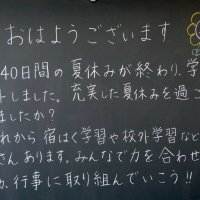 おはようございます
40日間の夏休みが終わり、学
トしました。充実した夏休みを過ご
ましたか?
れから宿はく学習や校外学習など
さんあります。みんなで力を合わせ
行事に取り組んでいこう!!